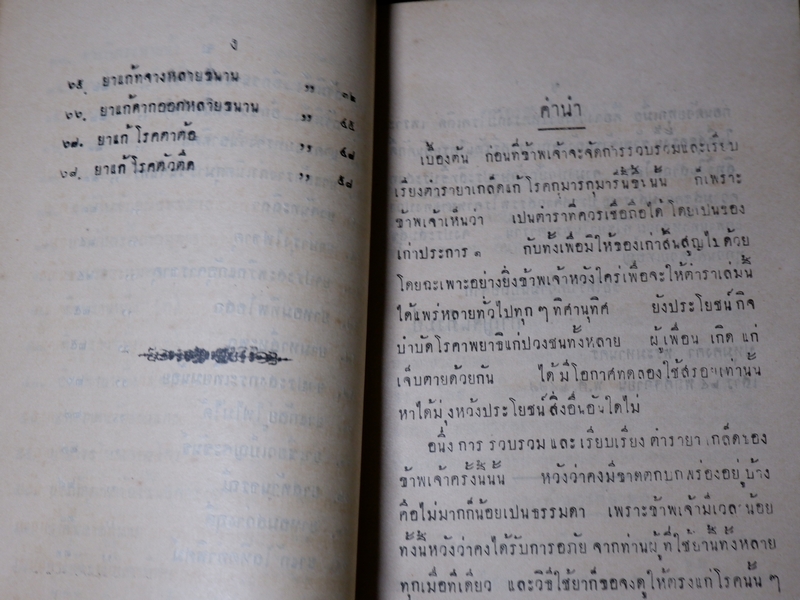 ง
๒๕. ยาแก้ทรางหลายขนาน " ๓๒
๒๖. ยาแก้คากออกหลายขนาน " ๔๕
๒๗. ยาแก้โรคตาต้อ " ๔๗
๒๘. ยาแก้โรคตัวตืด " ๕๘
คำนำ
เบื้องต้น ก่อนที่ข้าพเจ้าจะจัดการรวบรวมและเรียบ
เรียงตำรายาเกล็ดแก้โรคกุมารกุมารีนี้ขึ้นนั้น ก็เพราะ
ข้าพเจ้าเห็นว่า เป็นตำราที่ควรเชื่อถือได้ โดยเป็นของ
เก่าประการ ๑ กับทั้งเพื่อมิให้ของเก่าสิ้นสูญไปด้วย
โดยฉะเพาะอย่างยิ่งข้าพเจ้าหวังใคร่เพื่อจะให้ตำราเล่มนี้
ได้แพร่หลายทั่วไปทุก ๆ ทิศานุทิศ ยังประโยชน์กิจ
บำบัดโรคาพยาธิแก่ปวงชนทั้งหลาย ผู้เพื่อน เกิด แก่
เจ็บตายด้วยกัน ได้มีโอกาศทดลองใช้สรอยเท่านั้น
หาได้มุ่งหวังประโยชน์สิ่งอื่นอันใดไม่
อนึ่ง การ รวบรวม และ เรียบเรียง ตำรายา เกล็ดของ
ข้าพเจ้าครั้งนี้นั้น หวังว่าคงมีขาดตกบกพร่องอยู่บ้าง
คือไม่มากก็น้อยเป็นธรรมดา เพราะข้าพเจ้ามีเวลาน้อย
ทั้งนี้หวังว่าคงได้รับการอภัย จากท่านผู้ที่ใช้ยานี้ทั้งหลาย
ทุกเมื่อทีเดียว และวิธีใช้ยาก็ขอจงดูให้ตรงแก่โรคนั้น ๆ